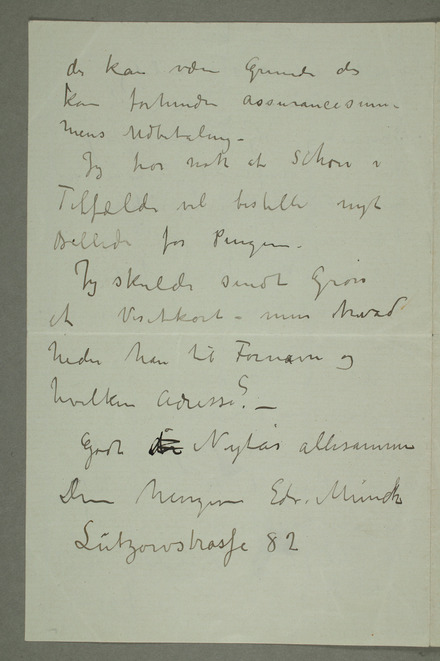 der kan være Grunde der
kan forhindre assurancesum-
mens Udbetaling –
Jeg tror nok at Schou i
Tilfælde vil bestille nyt
Billede for Pengene –
Jeg skulde sendt Grøis
et Visitkort – men hvad
heder han til Fornavn og
hvilken Adresse? –
Godt Nytår allesammen
Din hengivne Edv. Munch
Lützowstrasse 82